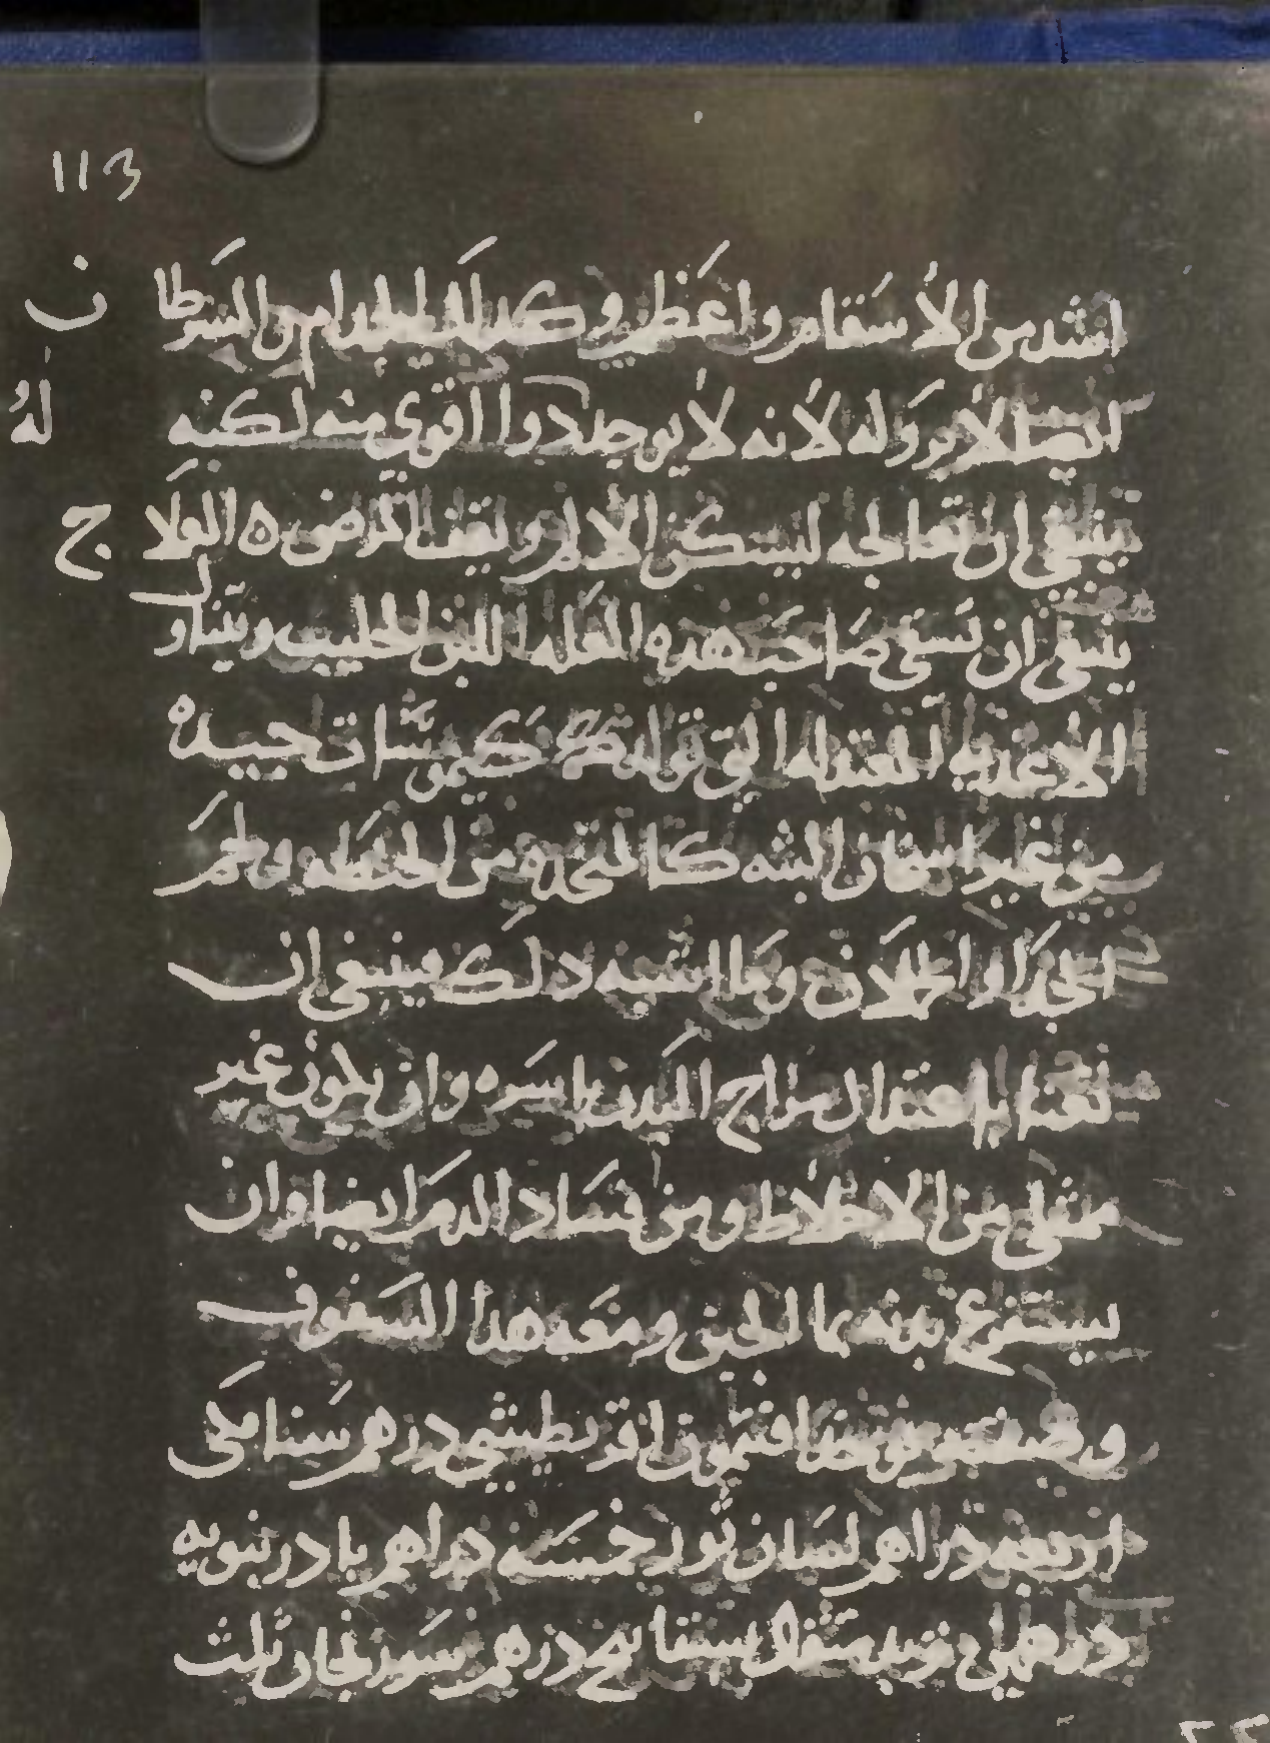 113
اشد من الأسقام واعظم وكدلك الجدام من السرطان
ايضا لا برو له لأنه لا يوجد دوا اقوى منه لكنه له
ينبغي ان تعالجه ليسكن الالم ويقف المرض ه العلاج
ينبغي ان تسقي صاحب هده العله اللبن الحليب ويتناول
الاغذيه المعتدله التي تولد كيموسات جيده
من غير اسخان البته كالمتخده من الحنطه ولحم
الجدا والحملان وما اشبه دلك فينبغي ان
باعتدال مزاج البدن باسره وان يكون غير
ممتلي من الاخلاط ومن فساد الدم ايضا وان
يستفرغ بدنه بما الجبن ومعه هدا السفوف
افتيمون اقريطيشي درهم سنا مكي
اربعه دراهم لسان ثور خمسه دراهم بادرنبويه
درهمين تربد مثقال بسفايج درهم سورنجان ثلث